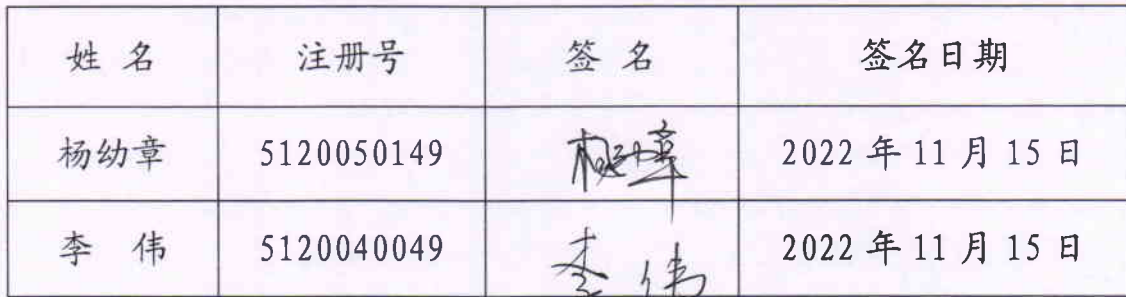 姓 名 注册号 签 名 签名日期
杨幼章 5120050149 杨幼章 2022 年 11 月 15 日
李 伟 5120040049 李 伟 2022 年 11 月 15 日